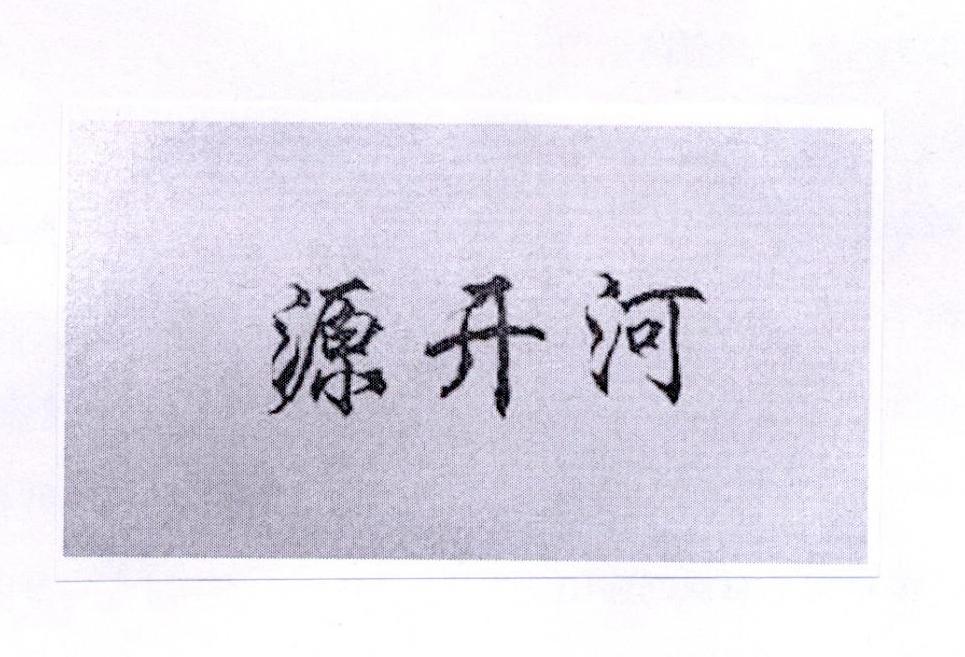 源开河